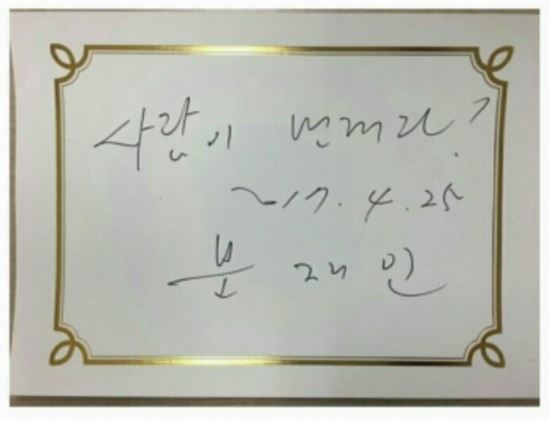 사람이 먼저다!
2017. 4. 25
문재인